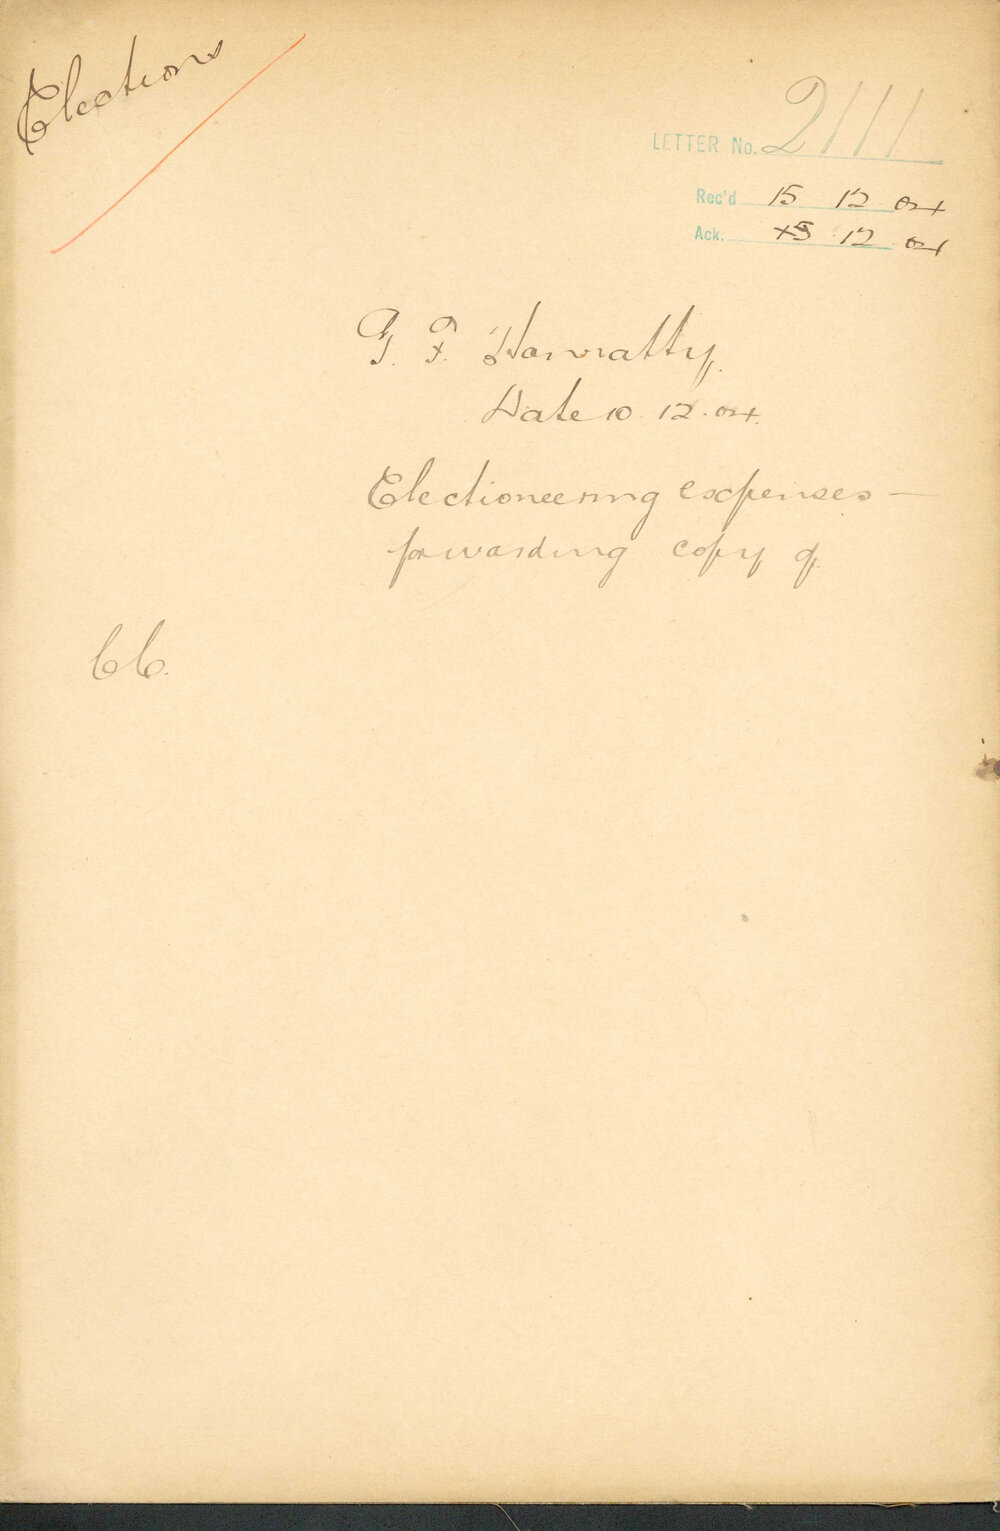 Elections
LETTER No. 2111
Rec'd 15 12 04
Ack. 15 12 04
G. F. Hanratty.
Date 10 12.04.
Electioneering expenses —
forwarding copy of
CC.